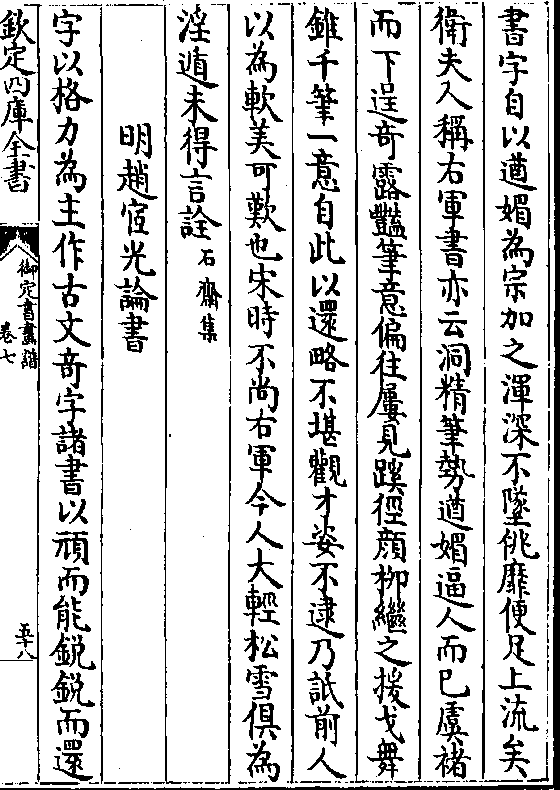 書字自以遒媚為宗加之渾深不墜佻靡便足上流矣
衛夫人稱右軍書亦云洞精筆勢遒媚逼人而已虞褚
而下逞奇露豔筆意偏往屢見蹊徑顔柳繼之援戈舞
錐千筆一意自此以還略不堪觀才姿不逮乃詆前人
以為軟美可歎也宋時不尚右軍今人大輕松雪俱為
淫遁未得言詮石齋集
明趙宧光論書
字以格力為主作古文奇字諸書以頑而能鋭鋭而還
欽定四庫全書
御定書畫譜
卷七
五十八